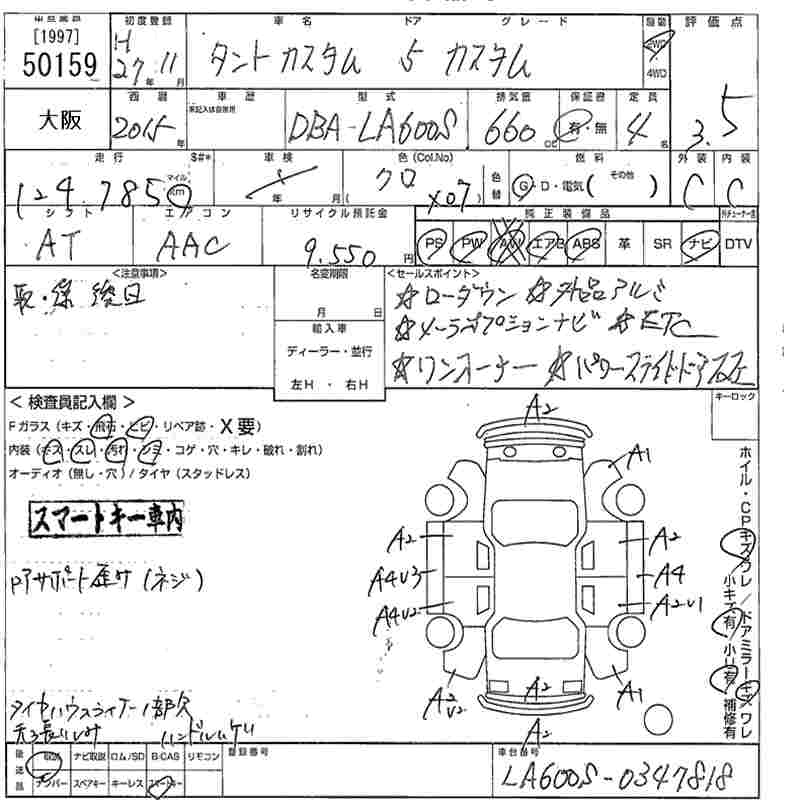 [1997] 初度登録 車名 ドア グレード 評価点
50159 H27年11月 タントカスタム 5 カスタム 2WD 4WD 3.5
大阪 西暦 車歴 型式 排気量 保証書 定員
2015年 未記入は自家用 DBA-LA600S 660cc 有・無 4名
走行 S#* 車検 色(Col.No) 燃料 外装 内装
124.785 マイル km 年 月 クロ X07 色替 G・D・電気( その他 ) C C
シフト エアコン リサイクル預託金 純正装備品
AT AAC 9.550円 PS PW AW エアB ABS 革 SR ナビ DTV
<注意事項> 名変期限 <セールスポイント>
取・保 後日 月 日 ☆ローダウン ☆外品アルミ
輸入車 ☆メーカーオプションナビ ☆ETC
ディーラー・並行 ☆ワンオーナー ☆パワースライドドア左右
左H・右H
<検査員記入欄> キーロック
Fガラス(キズ・飛石・ヒビ・リペア跡・X要)
内装(キズ・スレ・汚れ・シミ・コゲ・穴・キレ・破れ・割れ)
オーディオ(無し・穴)/タイヤ(スタッドレス)
スマートキー車内
アサポート歪サ(ネジ)
A2
A1
A2 A2
A4V3 A4
A4V2 A2V1
A2V2 A2 A1
A2
ホイル・CPキズワレ/ドアミラーキズワレ
小キズ有/小U有/補修有
タイヤハウスライナー1部欠
ハンドルスレ
後送品 取説 ナビ取説 ロム/SD B-CAS リモコン 登録番号 車台番号
ナンバー スペアキー キーレス スマートキー LA600S-0347818